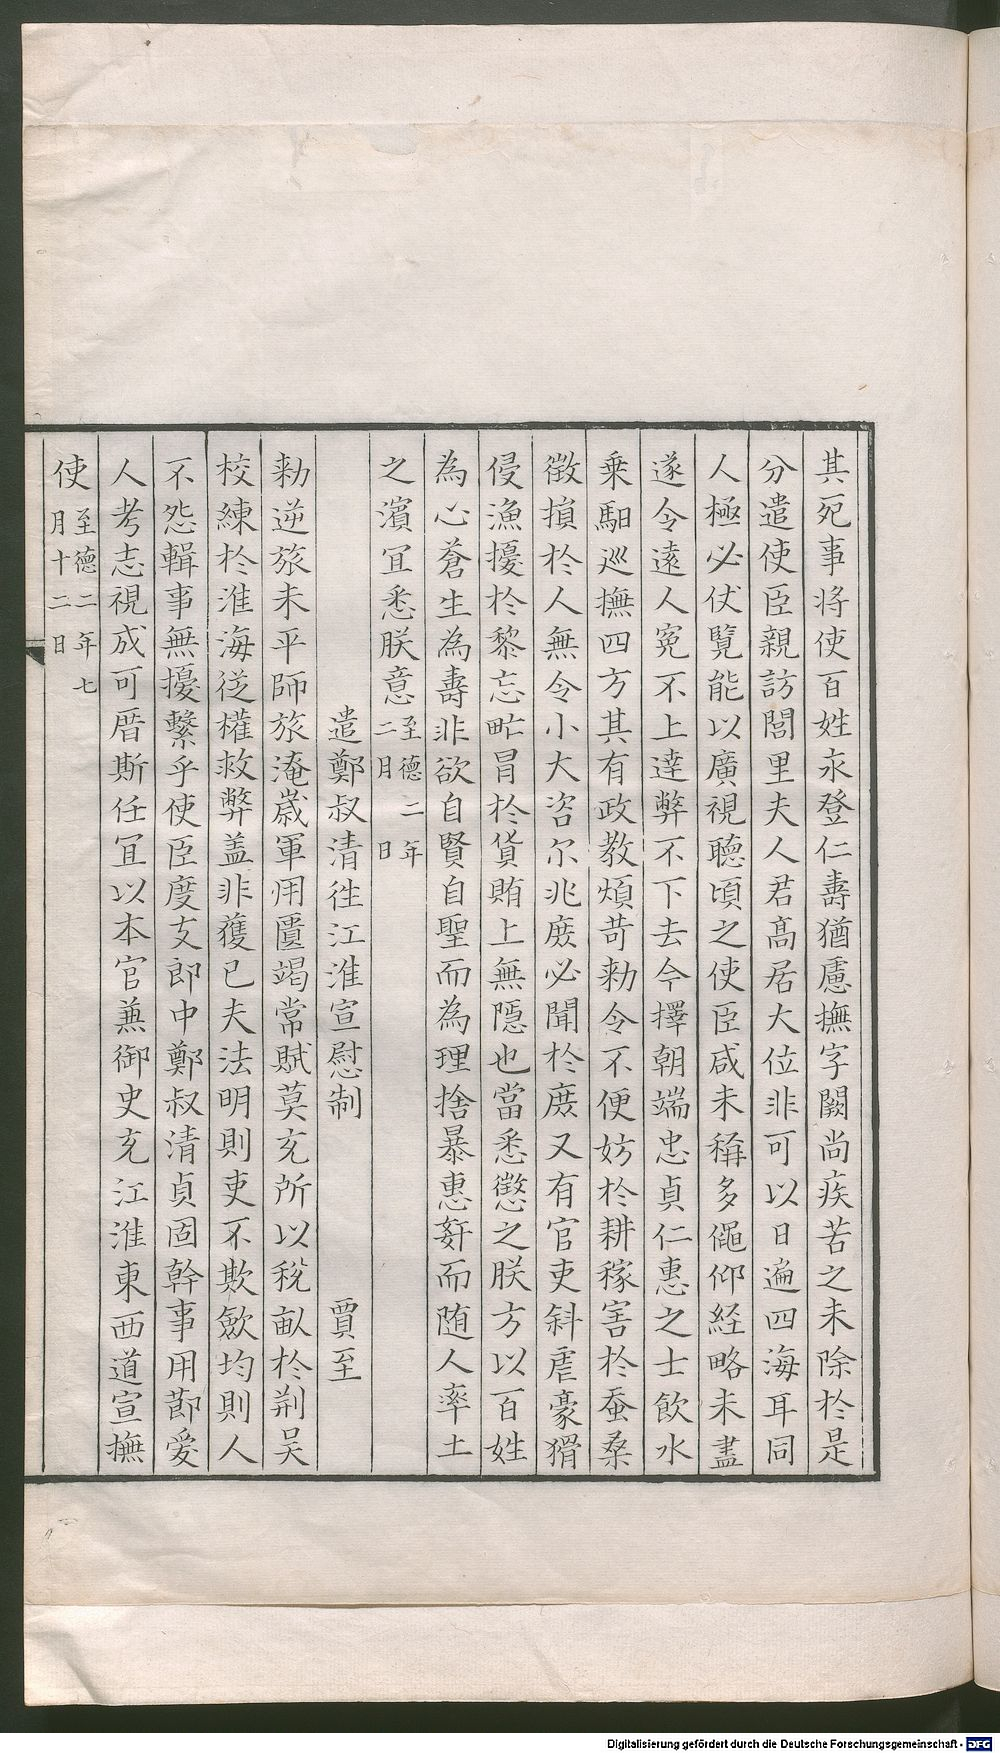 其死事將使百姓永登仁壽猶慮撫字闕尚疾苦之未除於是
分遣使臣親訪閭里夫人君髙居大位非可以日遍四海耳同
人極必伏覽能以廣視聽頃之使臣咸未稱多僶仰経略未盡
遂令遠人寃不上達弊不下去今擇朝端忠貞仁惠之士飲水
乗馹巡撫四方其有政教煩苛勑令不便妨於耕稼害於蚕桒
徵損於人無令小大咨尔兆庶必聞於庶又有官吏斜虐豪猾
侵漁擾於黎忘㡯冐於貨賄上無隠也當悉懲之朕方以百姓
為心蒼生為壽非欲自賢自聖而為理捨暴惠姧而随人率土
之濱宜悉朕意至德二年二月日
遣鄭叔清徃江淮宣慰制 賈至
勑逆旅未平師旅淹歲軍用匱竭常賦莫充所以税畝於荆吴
校練於淮海従權救弊盖非獲已夫法明則吏不欺歛均則人
不怨輯事無擾繫乎使臣度支郎中鄭叔清貞固幹事用莭爱
人考志視成可厝斯任宜以本官兼御史充江淮東西道宣撫
使至德二年七月十二日
Digitalisierung gefördert durch die Deutsche Forschungsgemeinschaft - DFG